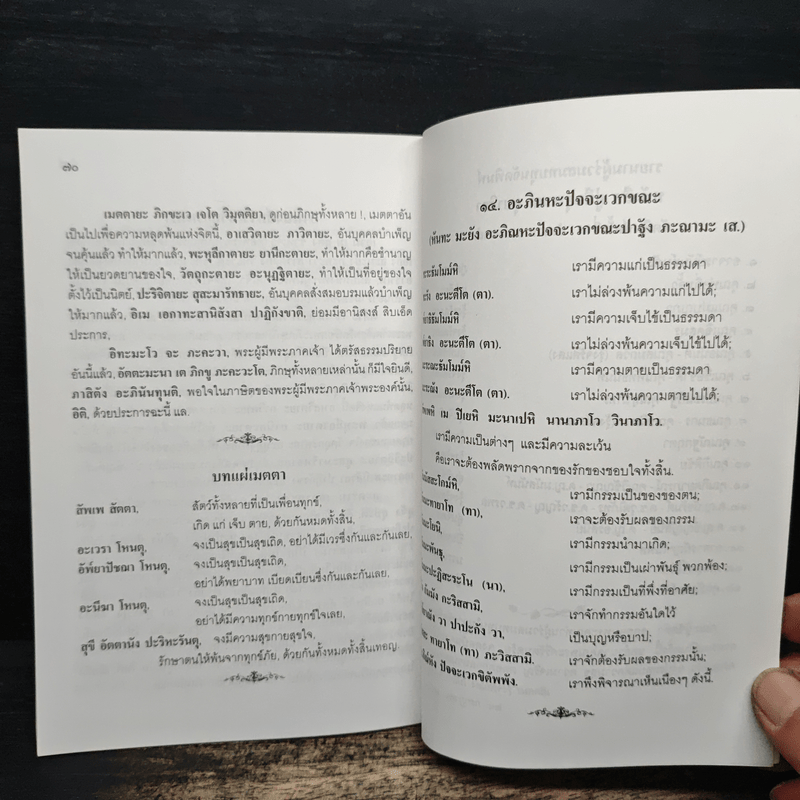 ๗๐
เมตตายะ ภิกขะเว เจโต วิมุตติยา, ดูก่อนภิกษุทั้งหลาย !, เมตตาอัน
เป็นไปเพื่อความหลุดพ้นแห่งจิตนี้, อาเสวิตายะ ภาวิตายะ, อันบุคคลบำเพ็ญ
จนคุ้นแล้ว ทำให้มากแล้ว, พะหุลีกาตายะ ยานีกะตายะ, ทำให้มากคือชำนาญ
ให้เป็นยวดยานของใจ, วัตถุกะตายะ อะนุฏฐิตายะ, ทำให้เป็นที่อยู่ของใจ
ตั้งไว้เป็นนิตย์, ปะริจิตายะ สุสะมารัทธายะ, อันบุคคลสั่งสมอบรมแล้วบำเพ็ญ
ให้มากแล้ว, อิเม เอกาทะสานิสังสา ปาฏิกังขาติ, ย่อมมีอานิสงส์ สิบเอ็ด
ประการ,
อิทะมะโว จะ ภะคะวา, พระผู้มีพระภาคเจ้า ได้ตรัสธรรมปริยาย
อันนี้แล้ว, อัตตะมะนา เต ภิกขู ภะคะวะโต, ภิกษุทั้งหลายเหล่านั้น ก็มีใจยินดี,
ภาสิตัง อะภินันทุนติ, พอใจในภาษิตของพระผู้มีพระภาคเจ้าพระองค์นั้น,
อิติ, ด้วยประการฉะนี้ แล.
บทแผ่เมตตา
สัพเพ สัตตา, สัตว์ทั้งหลายที่เป็นเพื่อนทุกข์,
เกิด แก่ เจ็บ ตาย, ด้วยกันหมดทั้งสิ้น,
อะเวรา โหนตุ, จงเป็นสุขเป็นสุขเถิด, อย่าได้มีเวรซึ่งกันและกันเลย,
อัพ์ยาปัชฌา โหนตุ, จงเป็นสุขเป็นสุขเถิด,
อย่าได้พยาบาท เบียดเบียนซึ่งกันและกันเลย,
อะนีฆา โหนตุ, จงเป็นสุขเป็นสุขเถิด,
อย่าได้มีความทุกข์กายทุกข์ใจเลย,
สุขี อัตตานัง ปะริหะรันตุ, จงมีความสุขกายสุขใจ,
รักษาตนให้พ้นจากทุกข์ภัย, ด้วยกันทั้งหมดทั้งสิ้นเทอญ
๑๔. อะภินหะปัจจะเวกขณะ
(หันทะ มะยัง อะภิณหะปัจจะเวกขณะปาฐัง ภะณามะ เส.)
ระธัมโมม๎หิ เรามีความแก่เป็นธรรมดา
อะนะตีโต (ตา). เราไม่ล่วงพ้นความแก่ไปได้;
ธิธัมโมม๎หิ เรามีความเจ็บไข้เป็นธรรมดา
อะนะตีโต (ตา). เราไม่ล่วงพ้นความเจ็บไข้ไปได้;
ระณะธัมโมม๎หิ เรามีความตายเป็นธรรมดา
อะนะตีโต (ตา). เราไม่ล่วงพ้นความตายไปได้;
เม ปิเยหิ มะนาเปหิ นานาภาโว วินาภาโว.
เรามีความเป็นต่างๆ และมีความละเว้น
คือเราจะต้องพลัดพรากจากของรักของชอบใจทั้งสิ้น.
มัสสะโกม๎หิ, เรามีกรรมเป็นของของตน;
ะทายาโท (ทา), เราจะต้องรับผลของกรรม
ะโยนิ, เรามีกรรมนำมาเกิด;
ะพันธุ, เรามีกรรมเป็นเผ่าพันธุ์ พวกพ้อง;
ะปะฏิสะระโน (นา), เรามีกรรมเป็นที่พึ่งที่อาศัย;
กะริสสามิ, เราจักทำกรรมอันใดไว้
วา ปาปะกัง วา, เป็นบุญหรือบาป;
ทายาโท (ทา) ภะวิสสามิ. เราจักต้องรับผลของกรรมนั้น;
ปัจจะเวกขิตัพพัง. เราพึงพิจารณาเห็นเนืองๆ ดังนี้.